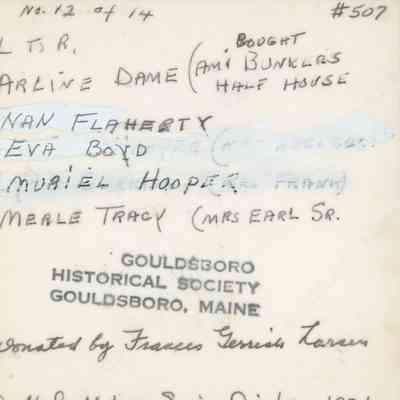 No. 12 of 14 #507
L TO R.
ARLINE DAME (AMI BUNKERS
BOUGHT
HALF HOUSE
NAN FLAHERTY
EVA BOYD
MURIEL HOOPER (MRS FRANK)
MERLE TRACY (MRS EARL SR.
GOULDSBORO
HISTORICAL SOCIETY
GOULDSBORO, MAINE
Donated by Frances Gerrish Larsen